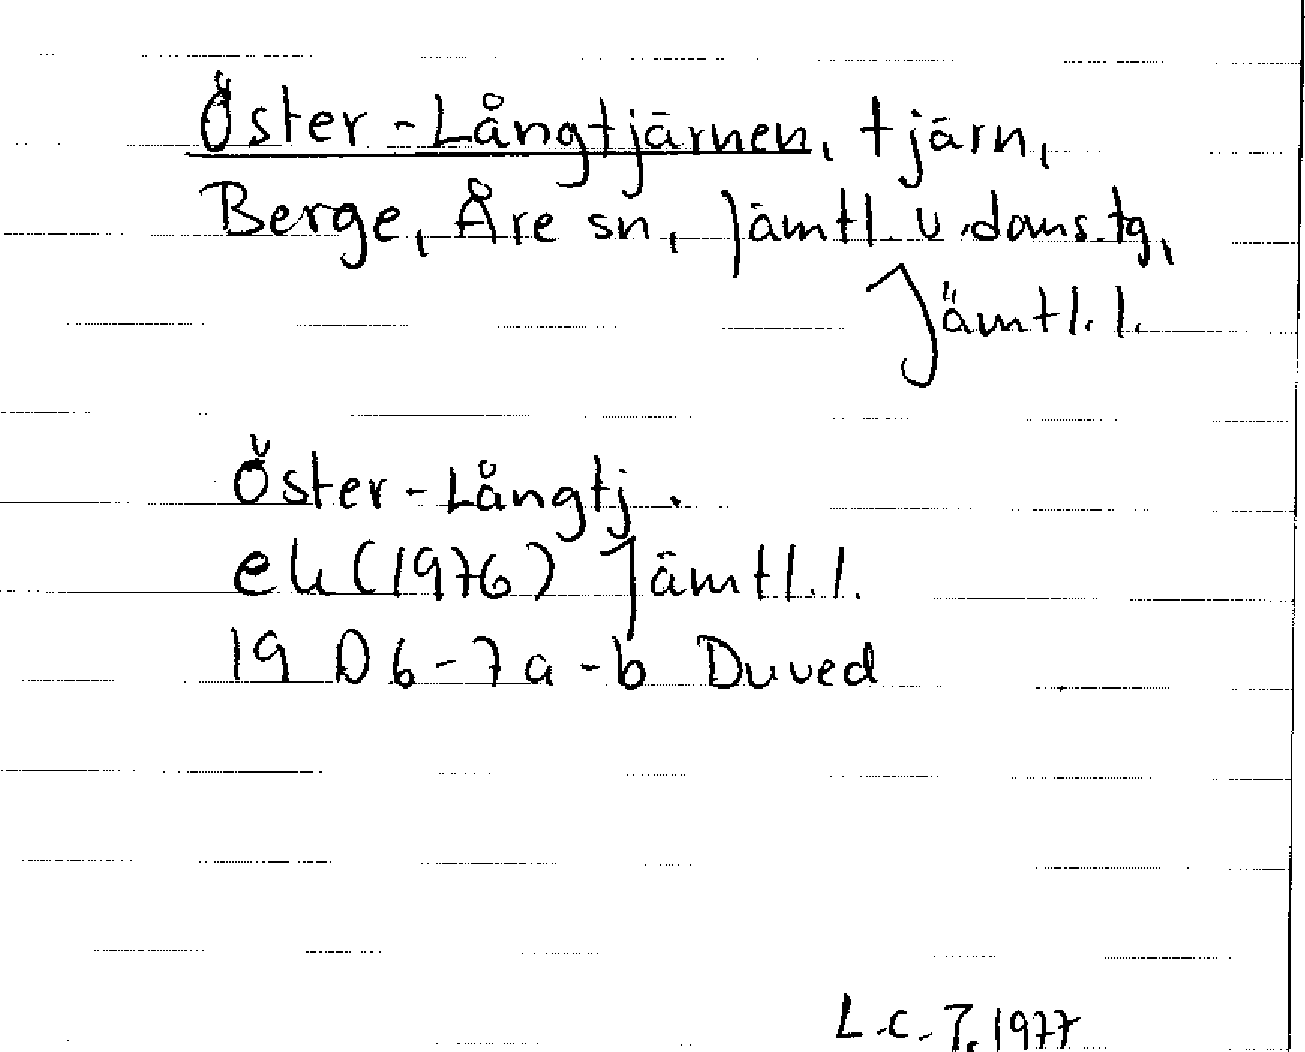 Öster-Långtjärnen, tjärn,
Berge, Åre sn, Jämtl. v. doms.tg,
Jämtl. l.
Öster-Långtj.
ek (1976) Jämtl. l.
19 D 6-7 a-b Duved
L.C.T. 1977